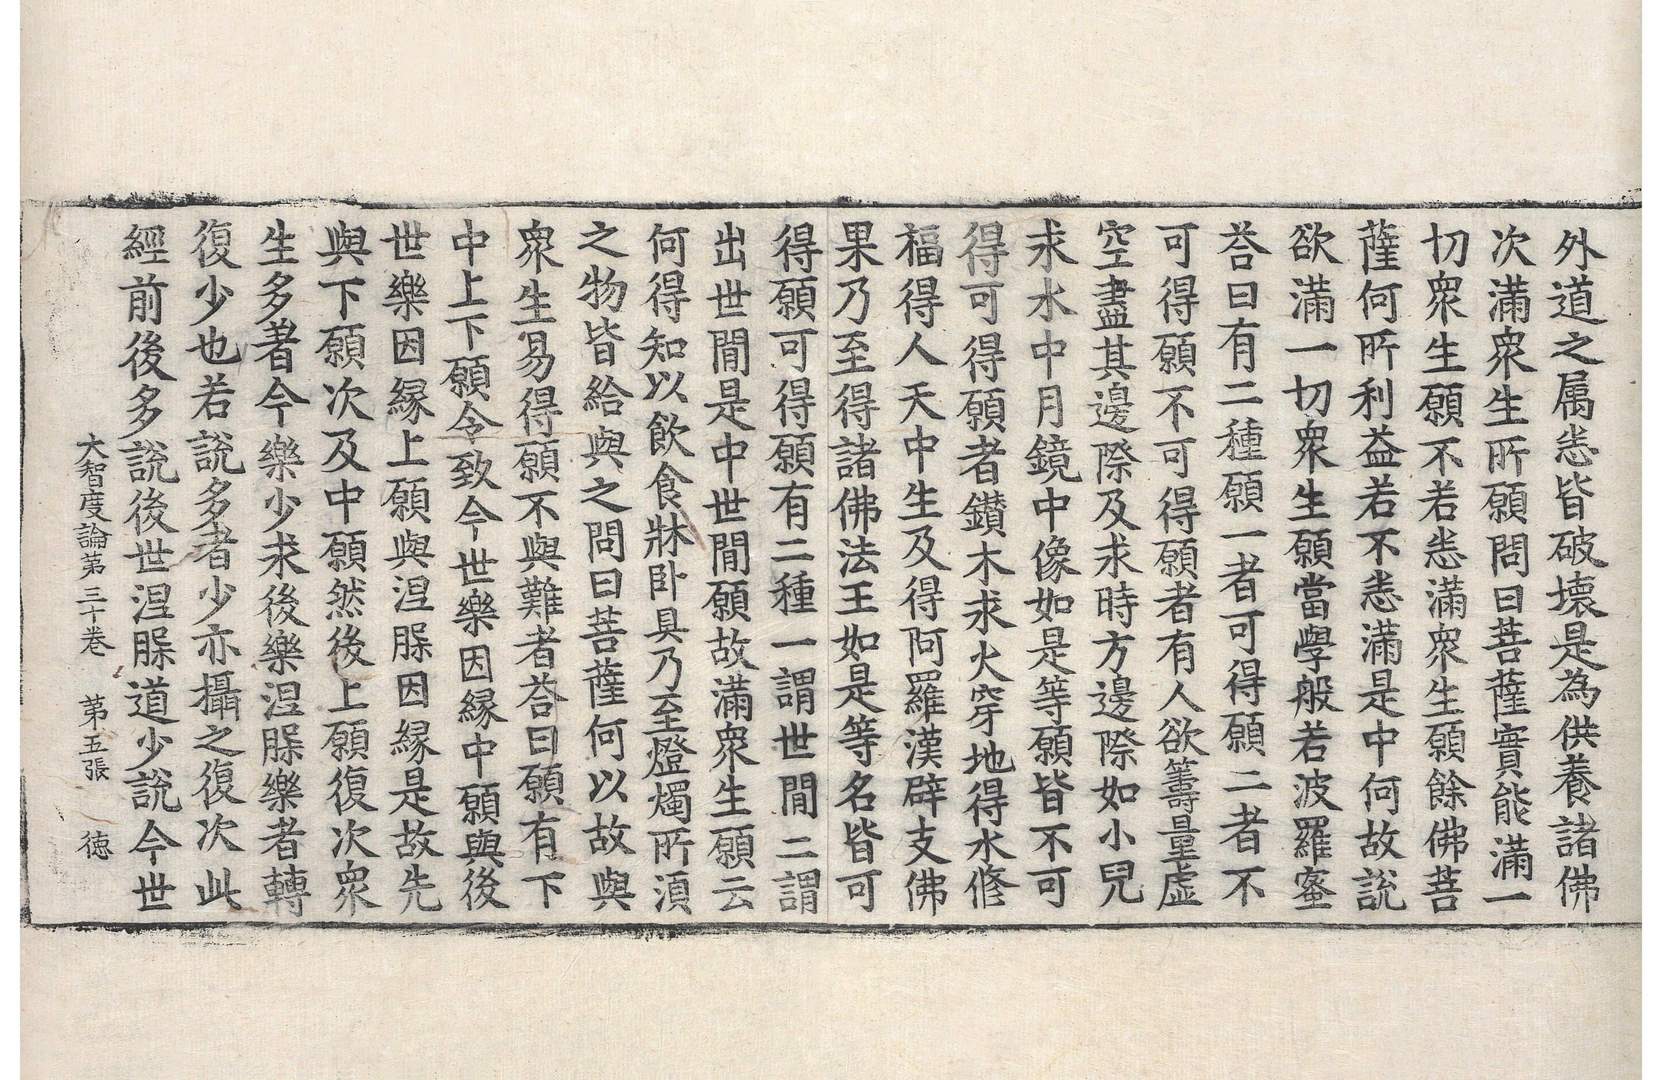 外道之属恙皆破壞是為供養諸佛
次滿衆生所願問曰菩薩實能滿一
切衆生願不若恙滿衆生願餘佛菩
薩何所利益若不恙滿是中何故說
欲滿一切衆生願當學般若波羅蜜
荅曰有二種願一者可得願二者不
可得願不可得願者有人欲籌量虛
空盡其邊際及求時方邊際如小兒
求水中月鏡中像如是等願皆不可
得可得願者鑽木求火穿地得水修
福得人天中生及得阿羅漢辟支佛
果乃至得諸佛法王如是等名皆可
得願可得願有二種一謂世間二謂
出世間是中世間願故滿衆生願云
何得知以飲食牀卧具乃至燈燭所湏
之物皆給與之問曰菩薩何以故與
衆生易得願不與難者荅曰願有下
中上下願令致今世樂因緣中願與後
世樂因緣上願與涅縣因緣是故先
與下願次及中願然後上願復次衆
生多著今樂少求後樂涅縣樂者轉
復少也若說多者少亦攝之復次此
經前後多說後世涅縣道少說今世
大智度論第三十卷 第五張 德